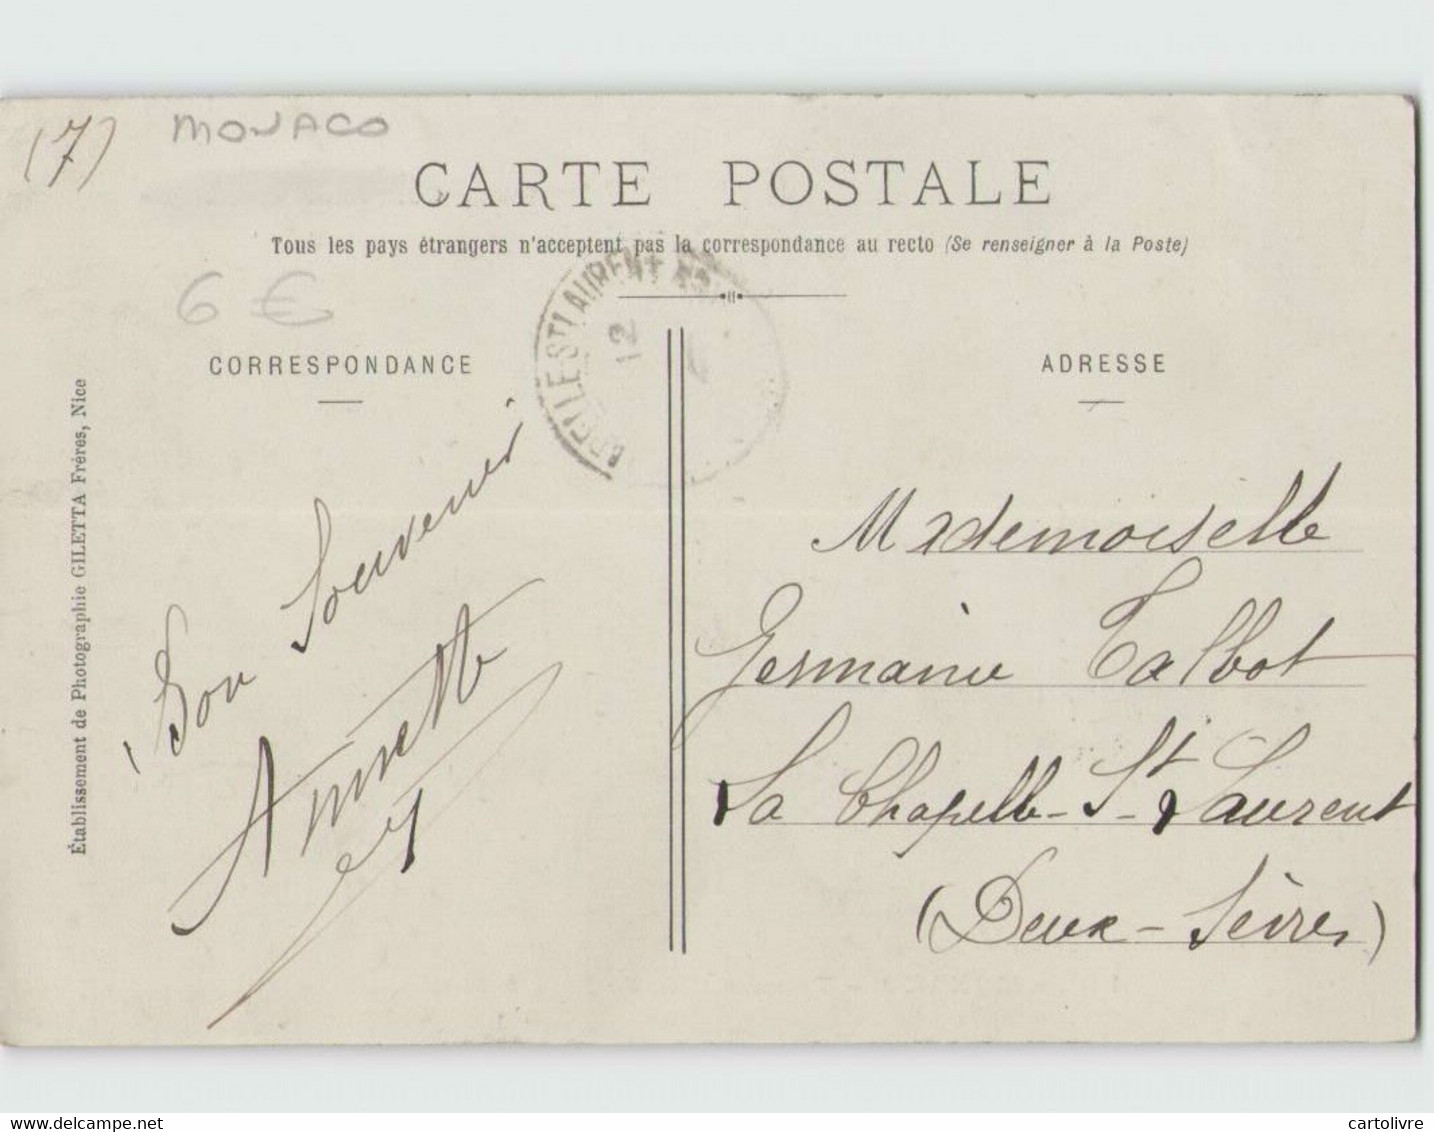 (7)
MONACO
CARTE POSTALE
Tous les pays étrangers n'acceptent pas la correspondance au recto (Se renseigner à la Poste)
6 €
LE ST LAURENT
12
CORRESPONDANCE
Bon Souvenir
Annette
Établissement de Photographie GILETTA Frères, Nice
ADRESSE
Mademoiselle
Germaine Talbot
La Chapelle-St-Laurent
(Deux-Sèvres)
www.delcampe.net
cartolivre